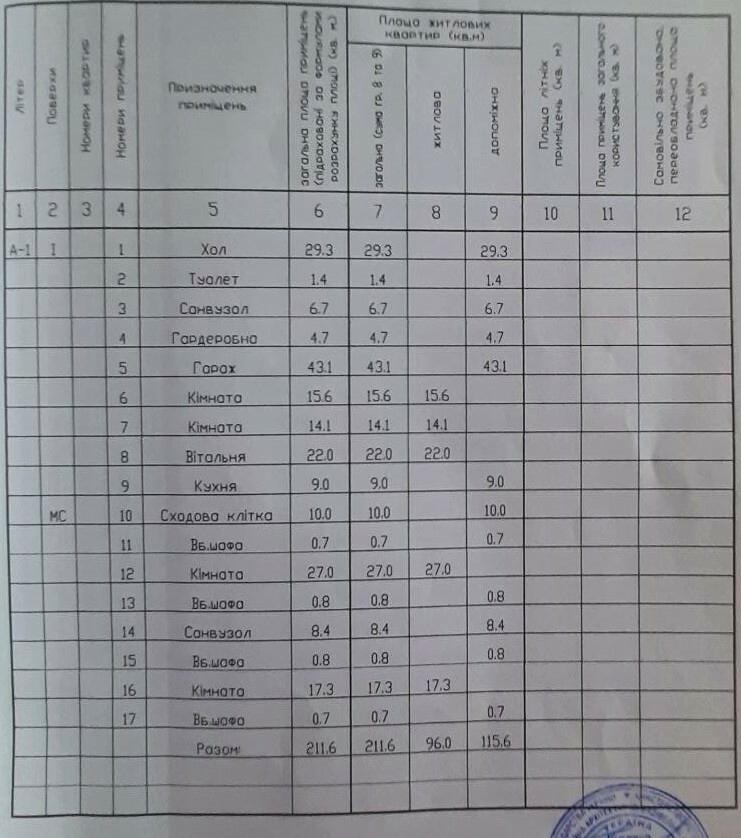 Літер
Поверхи
Номери квартир
Номери приміщень
Призначення
приміщень
загальна площа приміщень
(підраховані за формулами
розрахунку площі) (кв. м)
Площа житлових
квартир (кв.м)
загальна (сума гр. 8 та 9)
житлова
допоміжна
Площа літніх
приміщень (кв. м)
Площа приміщень загального
користування (кв. м)
Самовільно збудована,
переобладнана площа
приміщень
(кв. м)
1 2 3 4 5 6 7 8 9 10 11 12
А-1 I 1 Хол 29.3 29.3 29.3
2 Туалет 1.4 1.4 1.4
3 Санвузол 6.7 6.7 6.7
4 Гардеробна 4.7 4.7 4.7
5 Гараж 43.1 43.1 43.1
6 Кімната 15.6 15.6 15.6
7 Кімната 14.1 14.1 14.1
8 Вітальня 22.0 22.0 22.0
9 Кухня 9.0 9.0 9.0
МС 10 Сходова клітка 10.0 10.0 10.0
11 Вб.шафа 0.7 0.7 0.7
12 Кімната 27.0 27.0 27.0
13 Вб.шафа 0.8 0.8 0.8
14 Санвузол 8.4 8.4 8.4
15 Вб.шафа 0.8 0.8 0.8
16 Кімната 17.3 17.3 17.3
17 Вб.шафа 0.7 0.7 0.7
Разом: 211.6 211.6 96.0 115.6